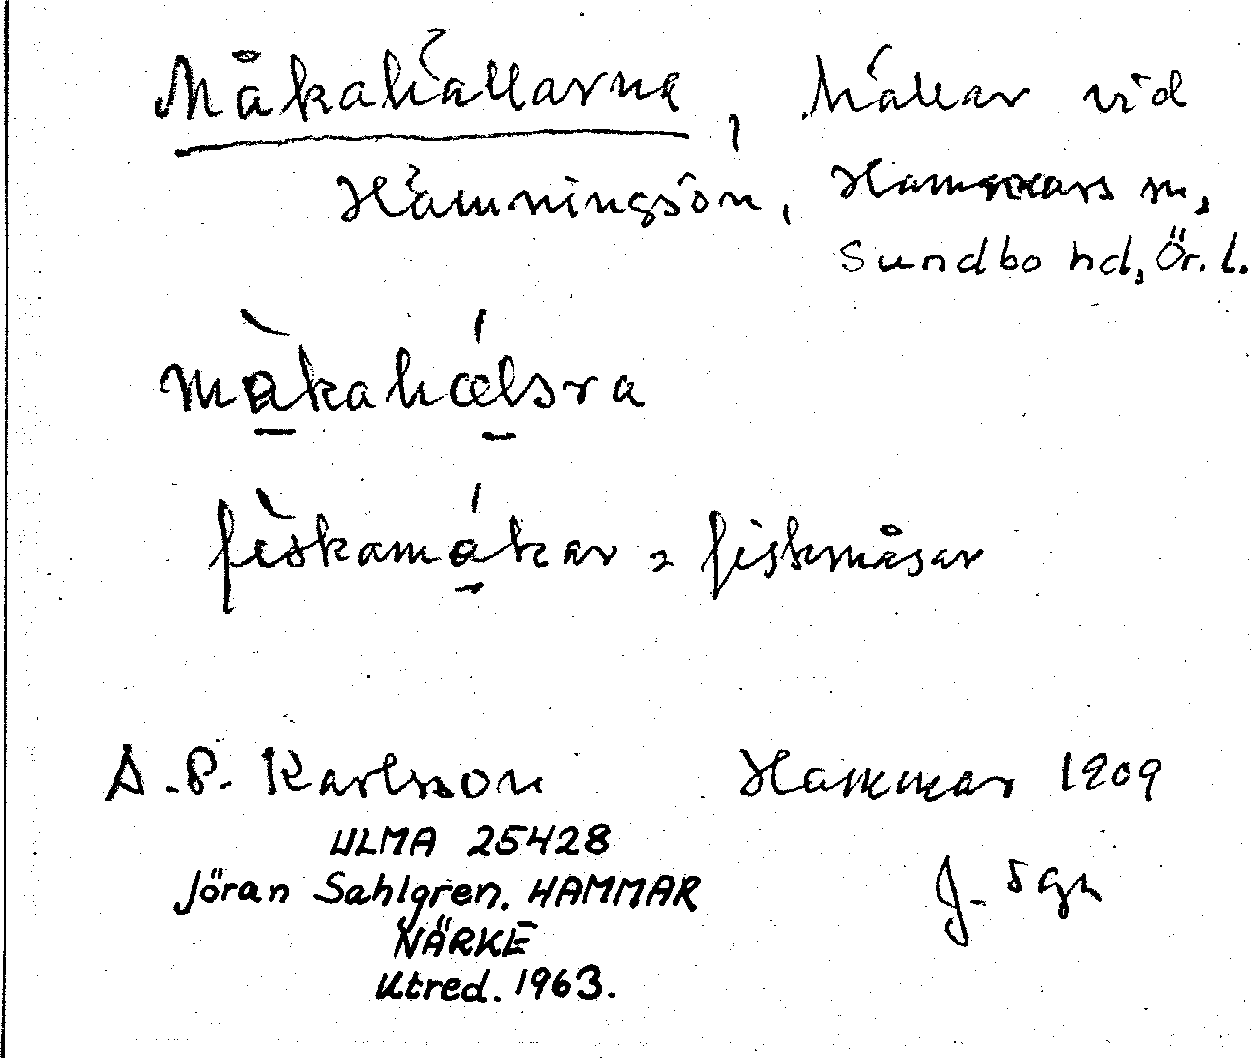 Måkahällarna, hällar vid
Hämningsön, Hammars sn,
Sundbo hd, Ör. l.
måkahælsra
feskamåkar = fiskmåsar
A. P. Karlsson Hammar 1909
ULMA 25428
Jöran Sahlgren. HAMMAR
NÄRKE
Utred. 1963.
J. Sgn